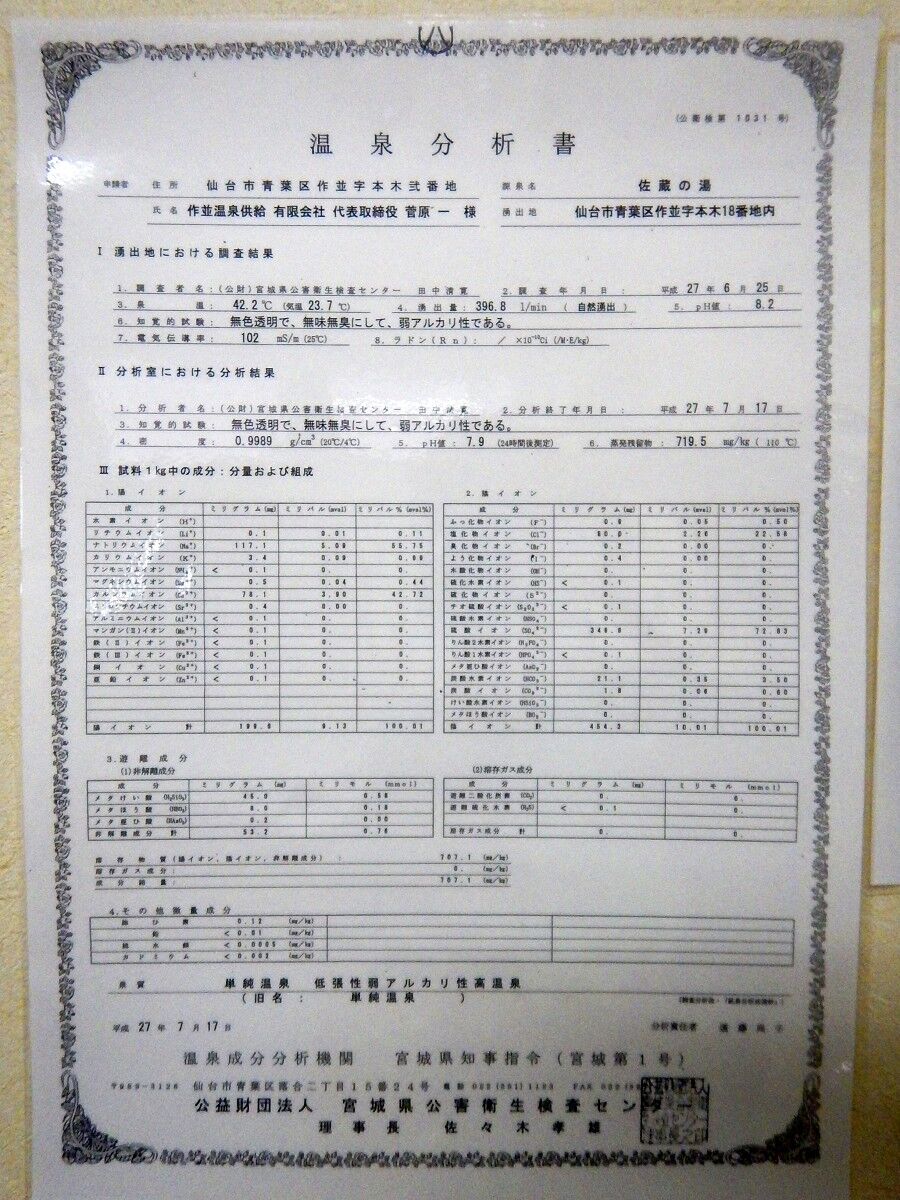 (公衛検第 1031 号)
温泉分析書
申請者 住所 仙台市青葉区作並字本木弐番地
源泉名 佐蔵の湯
氏名 作並温泉供給 有限会社 代表取締役 菅原 一 様
湧出地 仙台市青葉区作並字本木18番地内
Ⅰ 湧出地における調査結果
1. 調査者名:(公財)宮城県公害衛生検査センター 田中清寛 2. 調査年月日: 平成 27 年 6 月 25 日
3. 泉温: 42.2 ℃ (気温 23.7 ℃) 4. 湧出量: 396.8 l/min ( 自然湧出 ) 5. pH値: 8.2
6. 知覚的試験: 無色透明で、無味無臭にして、弱アルカリ性である。
7. 電気伝導率: 102 mS/m (25℃) 8. ラドン(Rn): / ×10⁻¹⁰Ci (/M·E/kg)
Ⅱ 分析室における分析結果
1. 分析者名:(公財)宮城県公害衛生検査センター 田中清寛 2. 分析終了年月日: 平成 27 年 7 月 17 日
3. 知覚的試験: 無色透明で、無味無臭にして、弱アルカリ性である。
4. 密度: 0.9989 g/cm³ (20℃/4℃) 5. pH値: 7.9 (24時間後測定) 6. 蒸発残留物: 719.5 mg/kg ( 110 ℃)
Ⅲ 試料1kg中の成分:分量および組成
1. 陽イオン
成分 ミリグラム(mg) ミリバル(mval) ミリバル%(mval%)
水素イオン (H⁺)
リチウムイオン (Li⁺) 0.1 0.01 0.11
ナトリウムイオン (Na⁺) 117.1 5.09 55.75
カリウムイオン (K⁺) 3.4 0.09 0.99
アンモニウムイオン < 0.1 0. 0.
マグネシウムイオン 0.5 0.04 0.44
カルシウムイオン (Ca²⁺) 78.1 3.90 42.72
ストロンチウムイオン (Sr²⁺) 0.4 0.00 0.
アルミニウムイオン (Al³⁺) < 0.1 0. 0.
マンガン(Ⅱ)イオン (Mn²⁺) < 0.1 0. 0.
鉄(Ⅱ)イオン (Fe²⁺) < 0.1 0. 0.
鉄(Ⅲ)イオン (Fe³⁺) < 0.1 0. 0.
銅イオン (Cu²⁺) < 0.1 0. 0.
亜鉛イオン (Zn²⁺) < 0.1 0. 0.
陽イオン計 199.6 9.13 100.01
2. 陰イオン
成分 ミリグラム(mg) ミリバル(mval) ミリバル%(mval%)
ふっ化物イオン (F⁻) 0.9 0.05 0.50
塩化物イオン (Cl⁻) 80.0 2.26 22.58
臭化物イオン (Br⁻) 0.2 0.00 0.
よう化物イオン (I⁻) 0.4 0.00 0.
水酸化物イオン (OH⁻) 0. 0. 0.
硫化水素イオン (HS⁻) < 0.1 0. 0.
硫化物イオン (S²⁻) 0. 0. 0.
チオ硫酸イオン (S₂O₃²⁻) < 0.1 0. 0.
硫酸水素イオン (HSO₄⁻) 0. 0. 0.
硫酸イオン (SO₄²⁻) 7.29 72.83
りん酸2水素イオン (H₂PO₄⁻) 0. 0. 0.
りん酸1水素イオン (HPO₄²⁻) < 0.1 0. 0.
メタ亜ひ酸イオン (AsO₂⁻) 0. 0. 0.
炭酸水素イオン (HCO₃⁻) 21.1 0.35 3.50
炭酸イオン (CO₃²⁻) 1.8 0.06 0.60
けい酸水素イオン (HSiO₃⁻) 0. 0. 0.
メタほう酸イオン (BO₂⁻) 0. 0. 0.
陰イオン計 454.3 10.01 100.01
3. 遊離成分
(1)非解離成分
成分 ミリグラム(mg) ミリモル(mmol)
メタけい酸 (H₂SiO₃) 45.0 0.58
メタほう酸 (HBO₂) 8.0 0.18
メタ亜ひ酸 (HAsO₂) 0.2 0.00
非解離成分計 53.2 0.76
(2)溶存ガス成分
成分 ミリグラム(mg) ミリモル(mmol)
遊離二酸化炭素 (CO₂) 0. 0.
遊離硫化水素 (H₂S) < 0.1 0.
溶存ガス成分計 0. 0.
溶存物質(陽イオン、陰イオン、非解離成分): 707.1 (mg/kg)
溶存ガス成分: 0. (mg/kg)
成分総量: 707.1 (mg/kg)
4. その他微量成分
総ひ素 0.12 (mg/kg)
鉛 < 0.01 (mg/kg)
総水銀 < 0.0005 (mg/kg)
カドミウム < 0.002 (mg/kg)
泉質 単純温泉 低張性弱アルカリ性高温泉
(旧名: 単純温泉 )
平成 27 年 7 月 17 日
分析責任者
温泉成分分析機関 宮城県知事指令(宮城第1号)
〒989-3126 仙台市青葉区落合二丁目15番24号 電話 022(391)1133 FAX 022
公益財団法人 宮城県公害衛生検査センター
理事長 佐々木孝雄